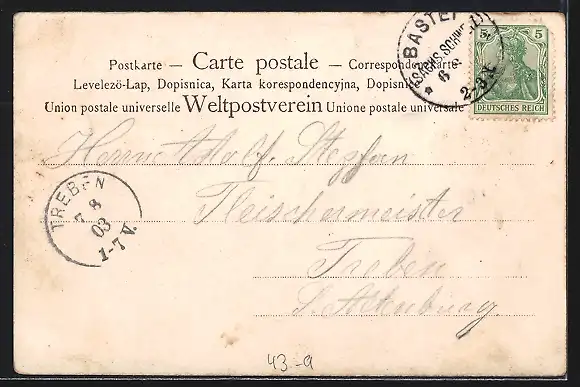 Postkarte — Carte postale — Correspondenzkarte
Levelezö-Lap, Dopisnica, Karta korespondencyjna, Dopisnice
Union postale universelle Weltpostverein Unione postale universale
BASTEI
(SÄCHS. SCHWEIZ)
6 8
2-3 N.
5 5
DEUTSCHES REICH
Herrn Adolf Stephan
Fleischermeister
Treben
S. Altenburg.
TREBEN
7 8
03
1-7 V.
43-a